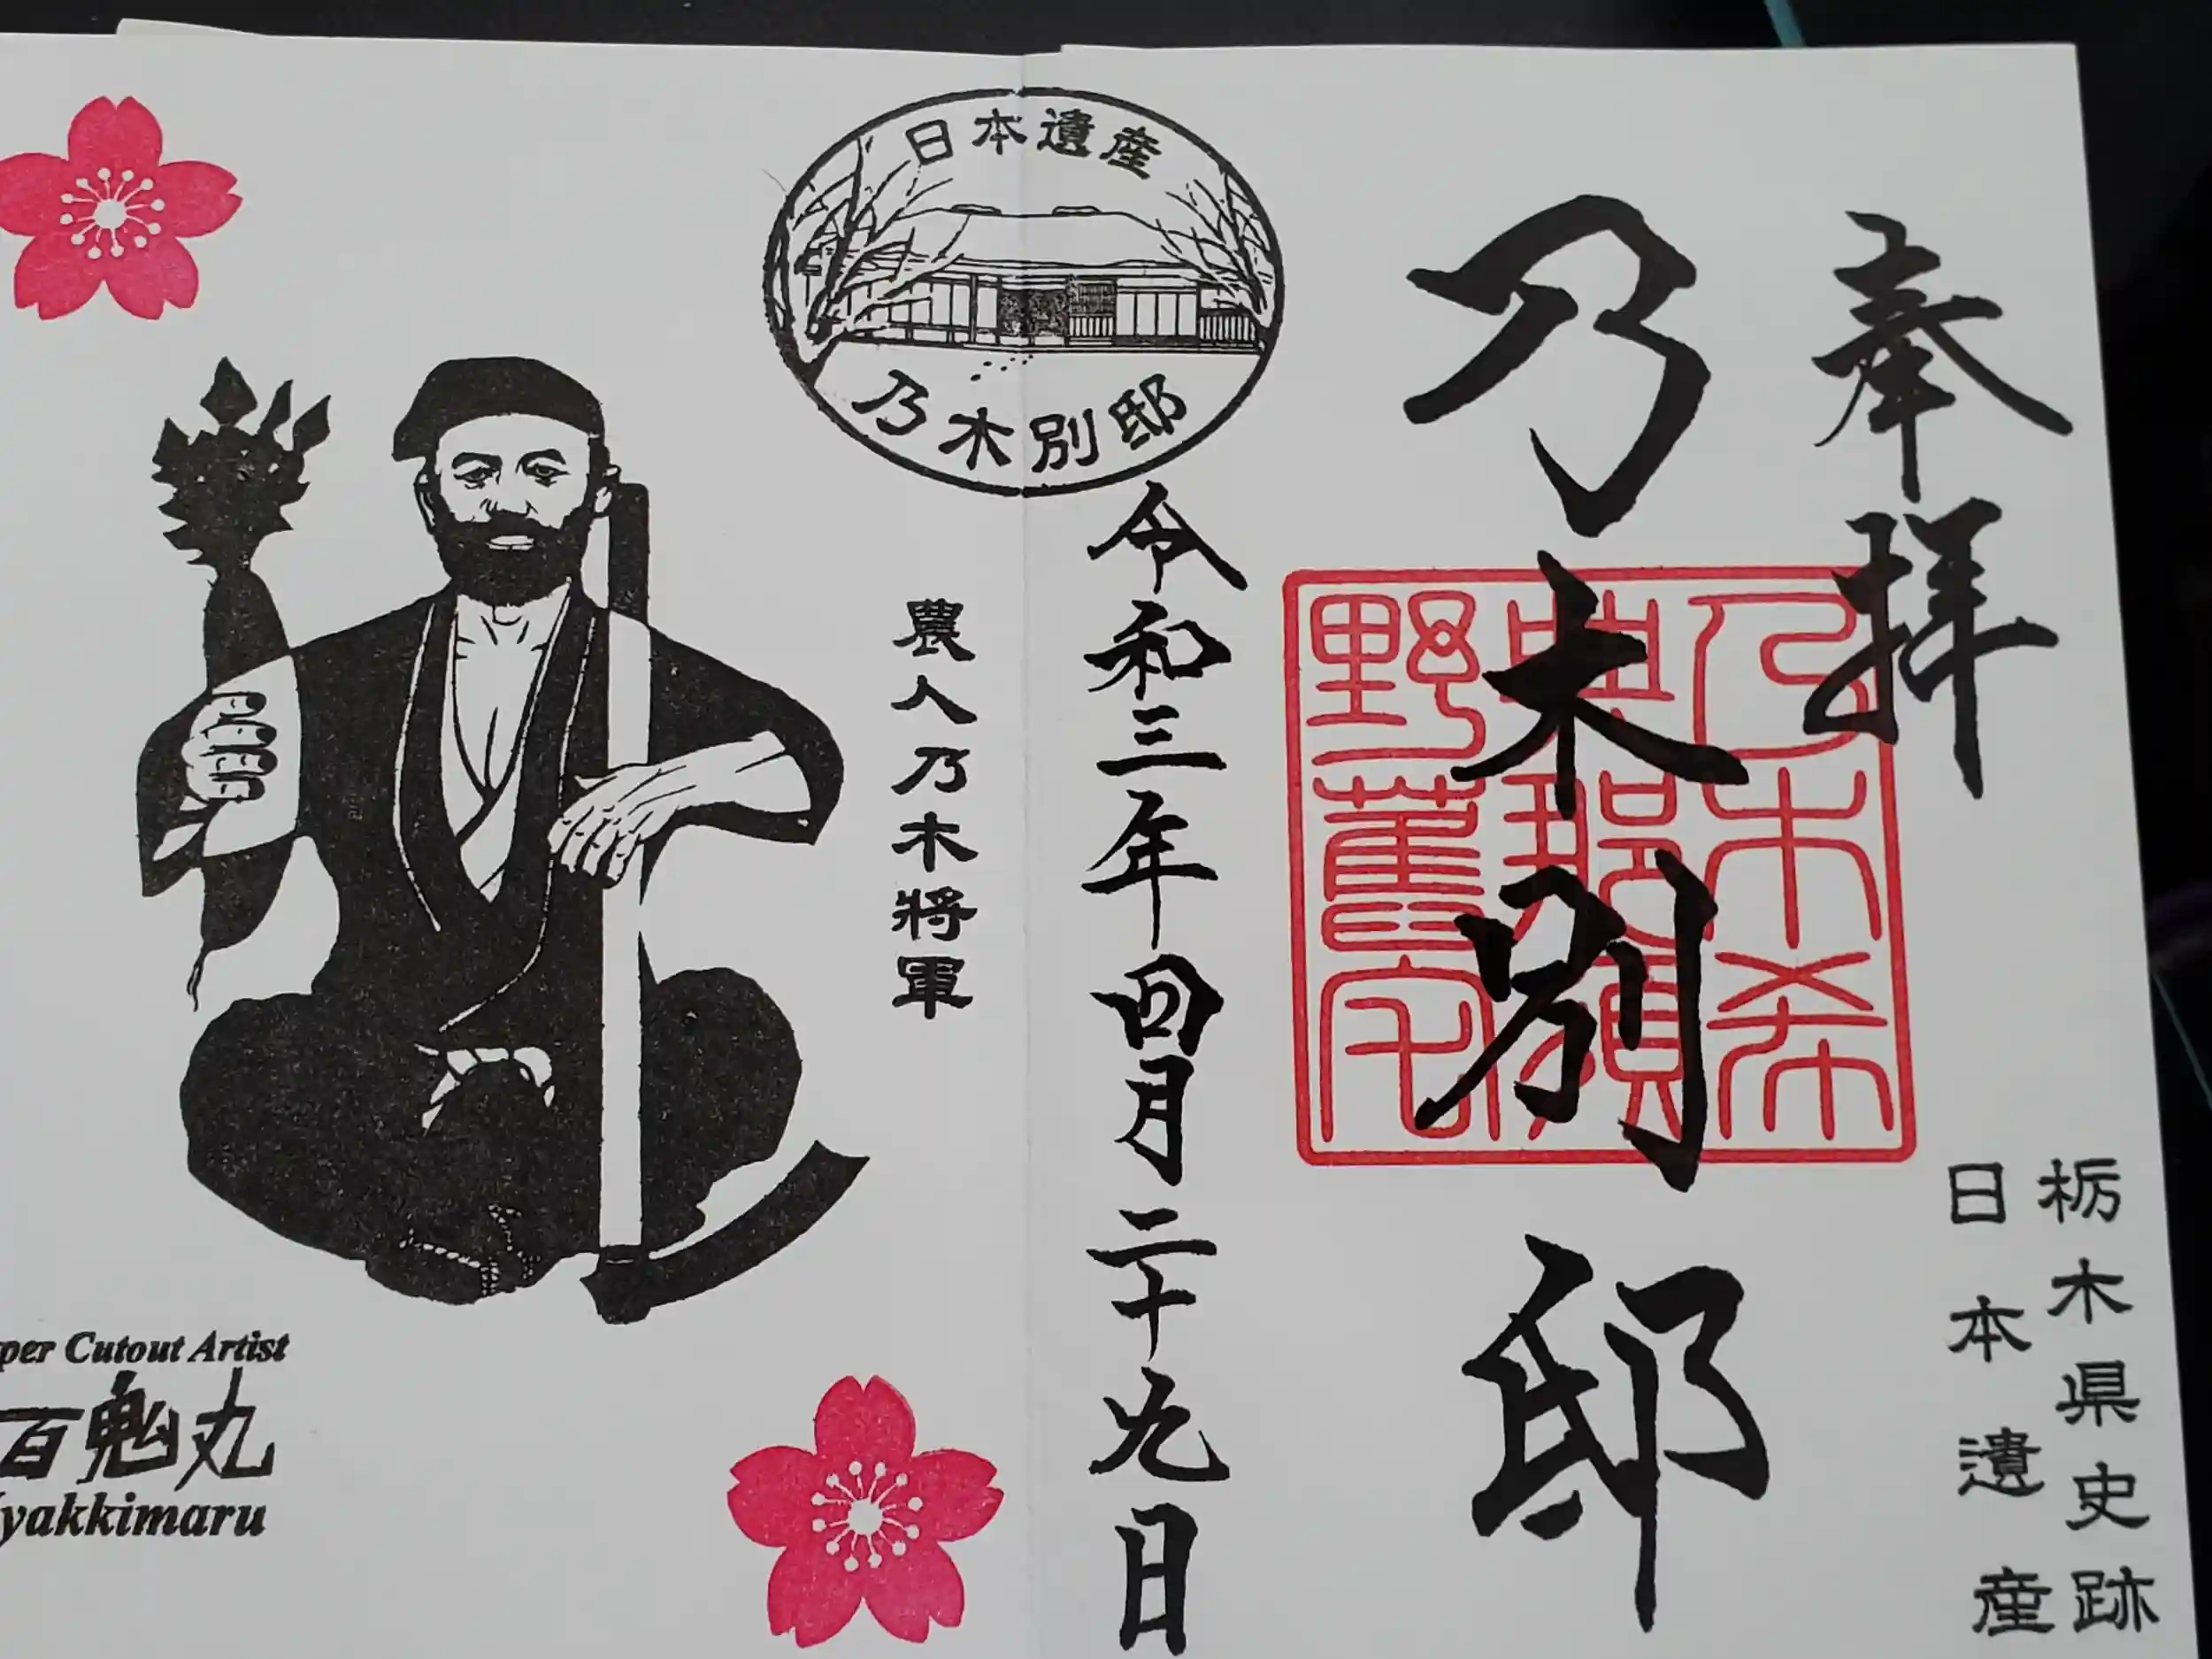 奉拝
栃木県史跡
日本遺産
乃木別邸
乃木希
典那須
野旧宅
日本遺産
乃木別邸
令和三年四月二十九日
農人乃木將軍
per Cutout Artist
百鬼丸
yakkimaru